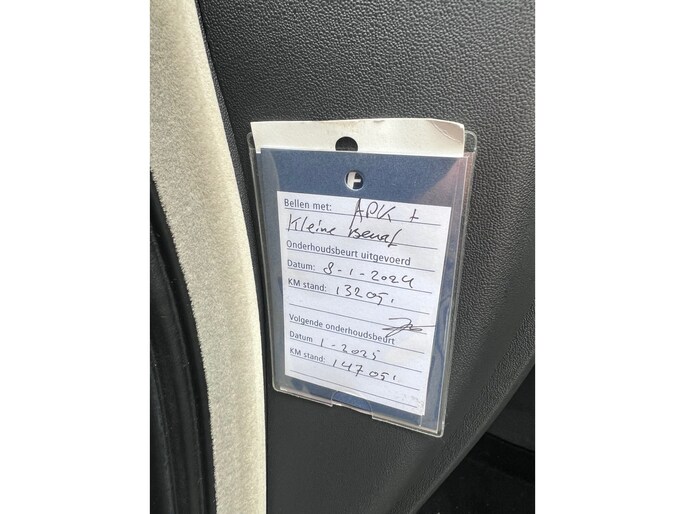 Bellen met: APK +
Kleine Beurt
Onderhoudsbeurt uitgevoerd
Datum: 8-1-2024
KM stand: 132051
Volgende onderhoudsbeurt
Datum 1-2025
KM stand: 147051